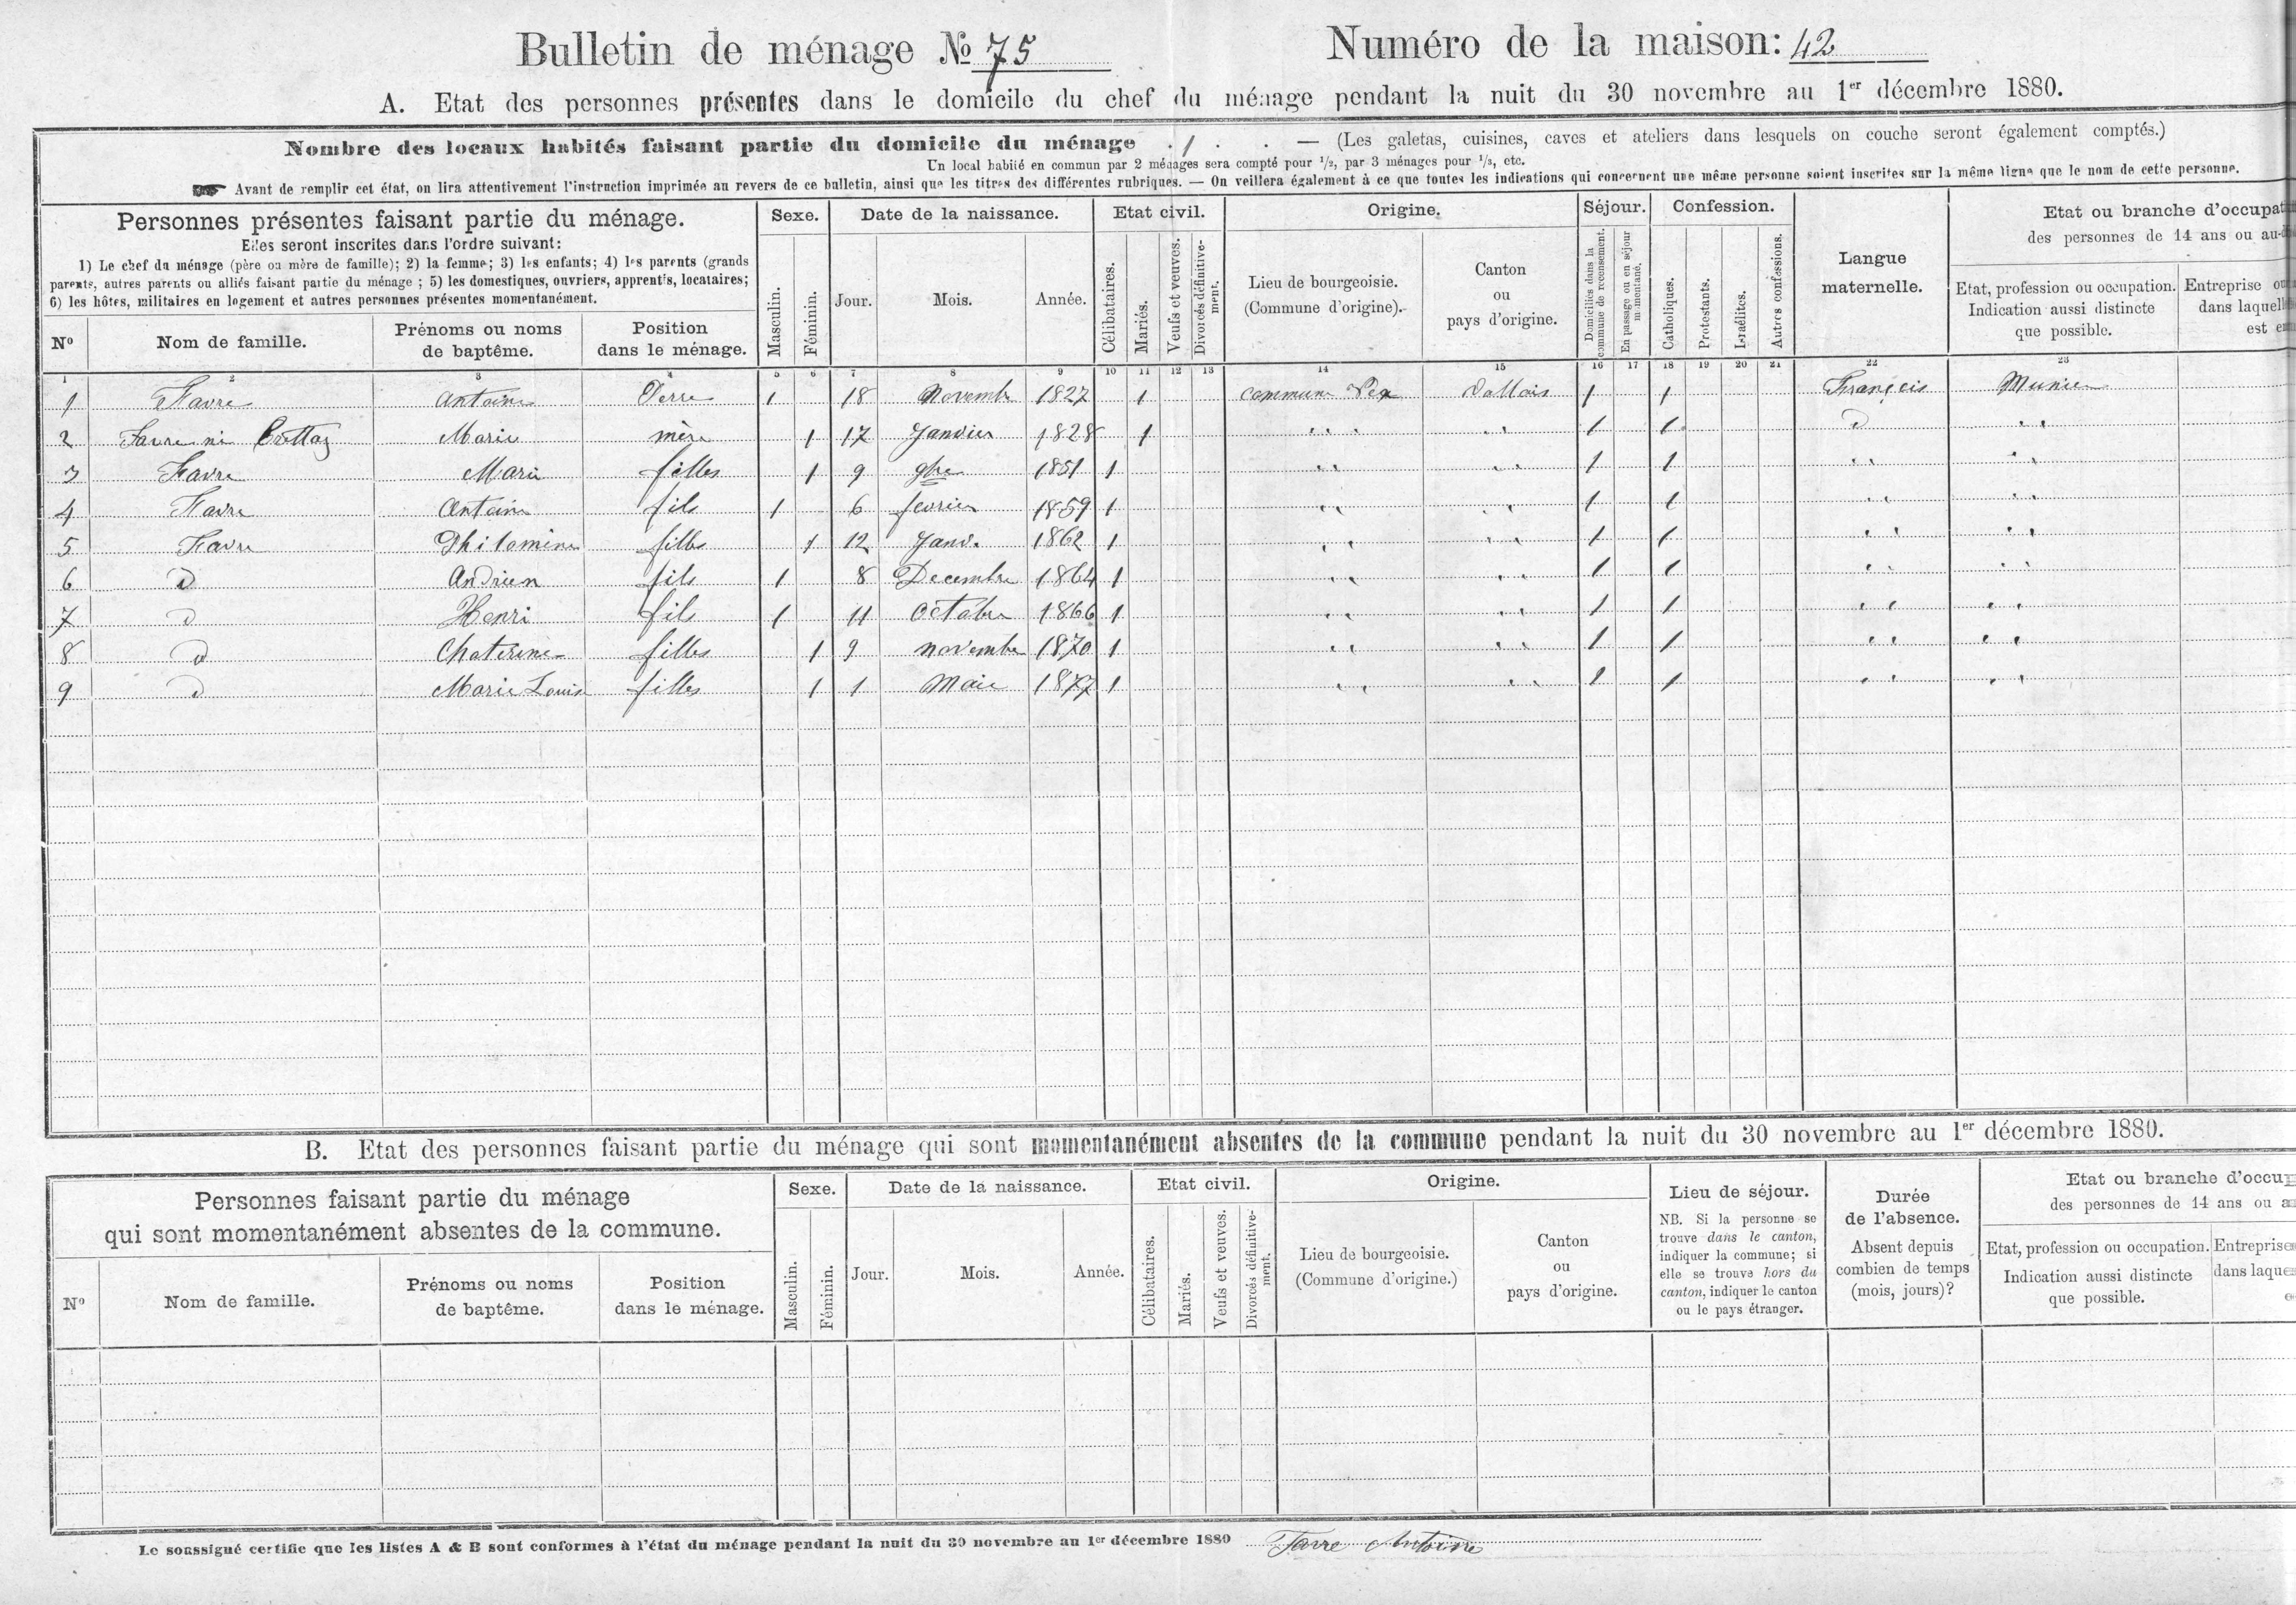 Bulletin de ménage No 75
Numéro de la maison: 42
A. Etat des personnes présentes dans le domicile du chef du ménage pendant la nuit du 30 novembre au 1er décembre 1880.
Nombre des locaux habités faisant partie du domicile du ménage . 1 . . — (Les galetas, cuisines, caves et ateliers dans lesquels on couche seront également comptés.)
Un local habité en commun par 2 ménages sera compté pour 1/2, par 3 ménages pour 1/3, etc.
☛ Avant de remplir cet état, on lira attentivement l'instruction imprimée au revers de ce bulletin, ainsi que les titres des différentes rubriques. — On veillera également à ce que toutes les indications qui concernent une même personne soient inscrites sur la même ligne que le nom de cette personne.
Personnes présentes faisant partie du ménage.
Elles seront inscrites dans l'ordre suivant:
1) Le chef du ménage (père ou mère de famille); 2) la femme; 3) les enfants; 4) les parents (grands
parents, autres parents ou alliés faisant partie du ménage; 5) les domestiques, ouvriers, apprentis, locataires;
6) les hôtes, militaires en logement et autres personnes présentes momentanément.
No
Nom de famille.
Prénoms ou noms
de baptême.
Position
dans le ménage.
Sexe.
Masculin.
Féminin.
Date de la naissance.
Jour.
Mois.
Année.
Etat civil.
Célibataires.
Mariés.
Veufs et veuves.
Divorcés définitive-
ment.
Origine.
Lieu de bourgeoisie.
(Commune d'origine).
Canton
ou
pays d'origine.
Séjour.
Domiciliés dans la
commune de recensement.
En passage ou en séjour
momentané.
Confession.
Catholiques.
Protestants.
Israélites.
Autres confessions.
Langue
maternelle.
Etat ou branche d'occupat
des personnes de 14 ans ou au-d
Etat, profession ou occupation.
Indication aussi distincte
que possible.
Entreprise ou
dans laquell
est e
1 2 3 4 5 6 7 8 9 10 11 12 13 14 15 16 17 18 19 20 21 22 23
1 Favre Antoine Perre 1 18 Novembr 1827 1 commune Vex Vallais 1 1 Françcis
2 Favre né Crettaz Marie mère 1 17 Janvier 1828 1 " " 1 1 d "
3 Favre Marie filles 1 9 9bre 1851 1 " " 1 1 " "
4 Favre Antoine fils 1 6 fevrier 1859 1 " " 1 1 " "
5 Favre Philomine filles 1 12 Janv. 1862 1 " " 1 1 " "
6 d Andrien fils 1 8 Decembre 1864 1 " " 1 1 " "
7 d Henri fils 1 11 Octobre 1866 1 " " 1 1 " "
8 d Chaterine filles 1 9 novembre 1870 1 " " 1 1 " "
9 d Marie Louise filles 1 1 Maie 1877 1 " " 1 1 " "
B. Etat des personnes faisant partie du ménage qui sont momentanément absentes de la commune pendant la nuit du 30 novembre au 1er décembre 1880.
Personnes faisant partie du ménage
qui sont momentanément absentes de la commune.
No
Nom de famille.
Prénoms ou noms
de baptême.
Position
dans le ménage.
Sexe.
Masculin.
Féminin.
Date de la naissance.
Jour.
Mois.
Année.
Etat civil.
Célibataires.
Mariés.
Veufs et veuves.
Divorcés définitive-
ment.
Origine.
Lieu de bourgeoisie.
(Commune d'origine.)
Canton
ou
pays d'origine.
Lieu de séjour.
NB. Si la personne se
trouve dans le canton,
indiquer la commune; si
elle se trouve hors du
canton, indiquer le canton
ou le pays étranger.
Durée
de l'absence.
Absent depuis
combien de temps
(mois, jours)?
Etat ou branche d'occup
des personnes de 14 ans ou a
Etat, profession ou occupation.
Indication aussi distincte
que possible.
Entreprise
dans laque
e
Le soussigné certifie que les listes A & B sont conformes à l'état du ménage pendant la nuit du 30 novembre au 1er décembre 1880 Favre Antoine